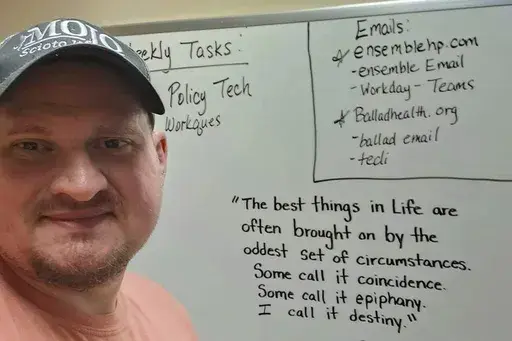 MOJO
Scioto
Weekly Tasks:
Policy Tech
Workques
Emails:
ensemblehp.com
- ensemble Email
- Workday - Teams
Balladhealth.org
- ballad email
- tedi
"The best things in Life are
often brought on by the
oddest set of circumstances.
Some call it coincidence.
Some call it epiphany.
I call it destiny."